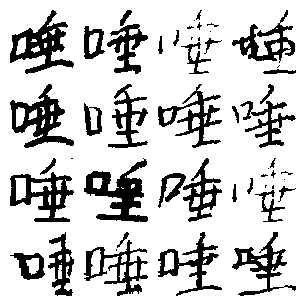 唾唾唾唾
唾唾唾唾
唾唾唾唾
唾唾唾唾